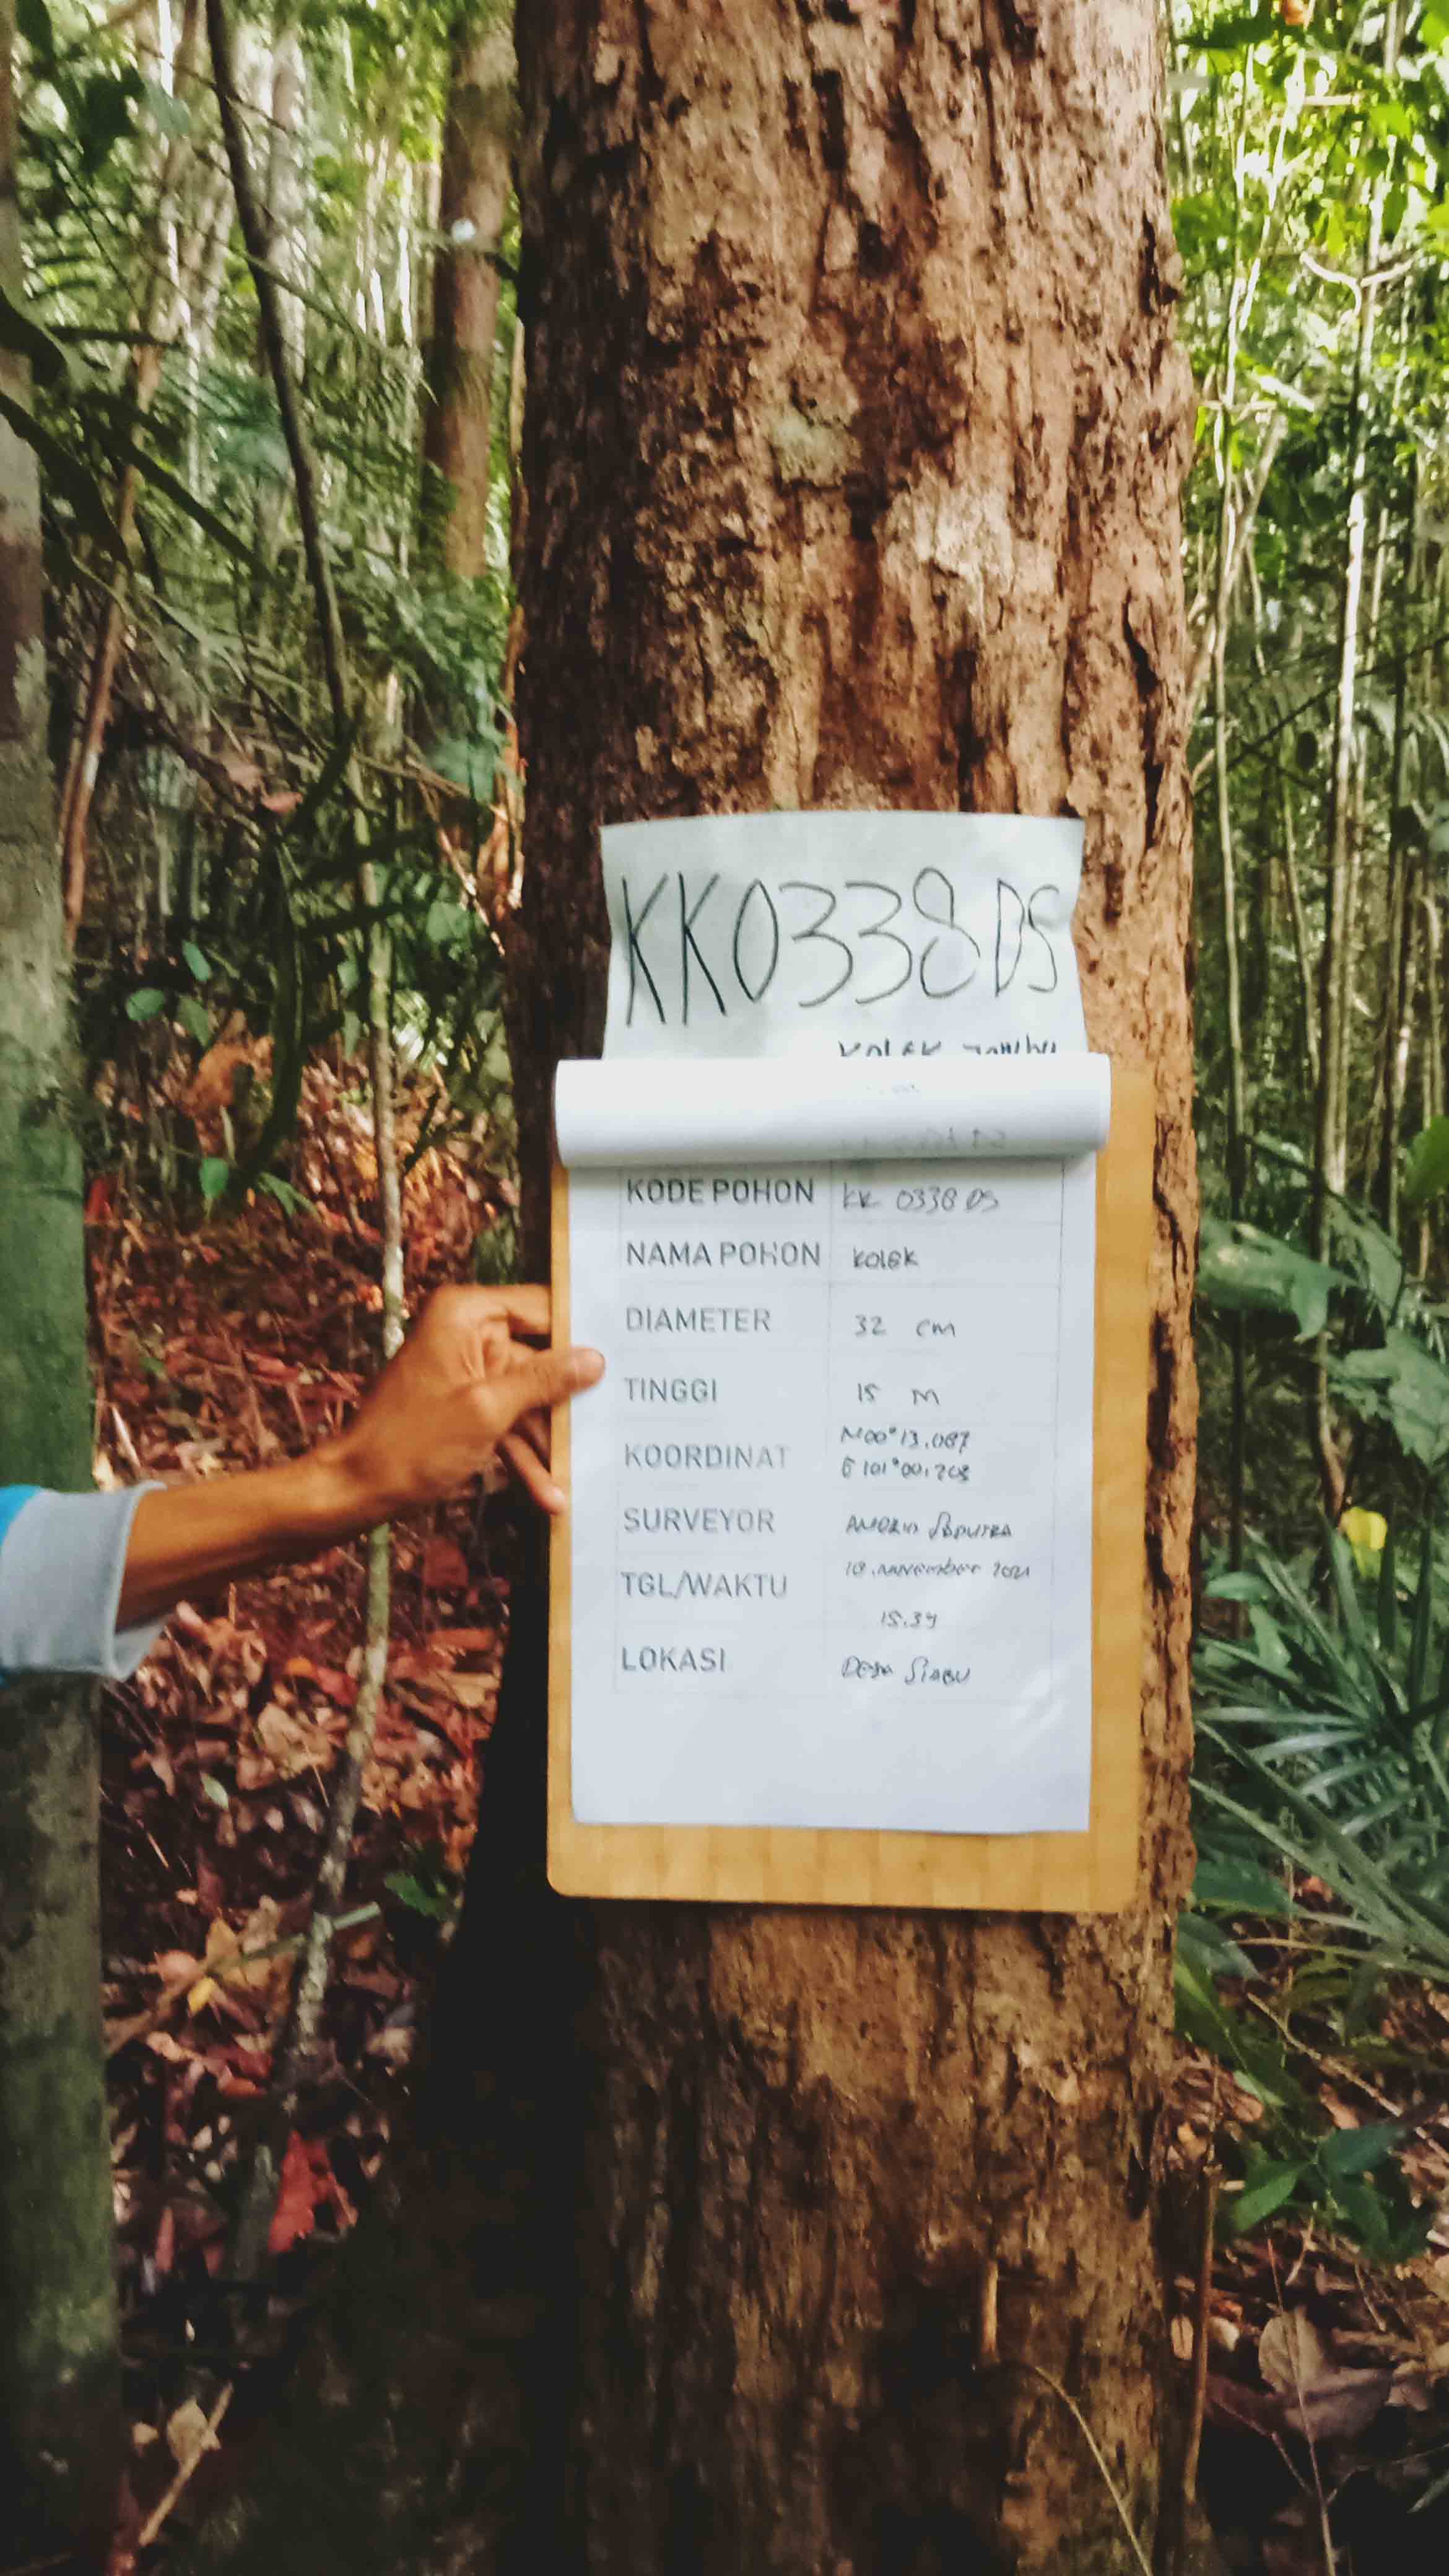 KK0338DS
KOLEK
KODE POHON KK 0338 DS
NAMA POHON KOLEK
DIAMETER 32 cm
TINGGI 15 M
KOORDINAT N00°13.087
E 101°00.208
SURVEYOR SAPUTRA
TGL/WAKTU 18 november 2021
15.34
LOKASI DESA SIABU